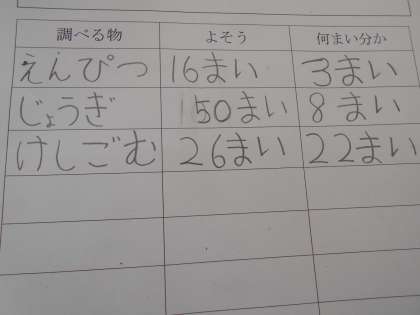 調べる物 よそう 何まい分か
えんぴつ 16まい 3まい
じょうぎ 50まい 8まい
けしごむ 26まい 22まい